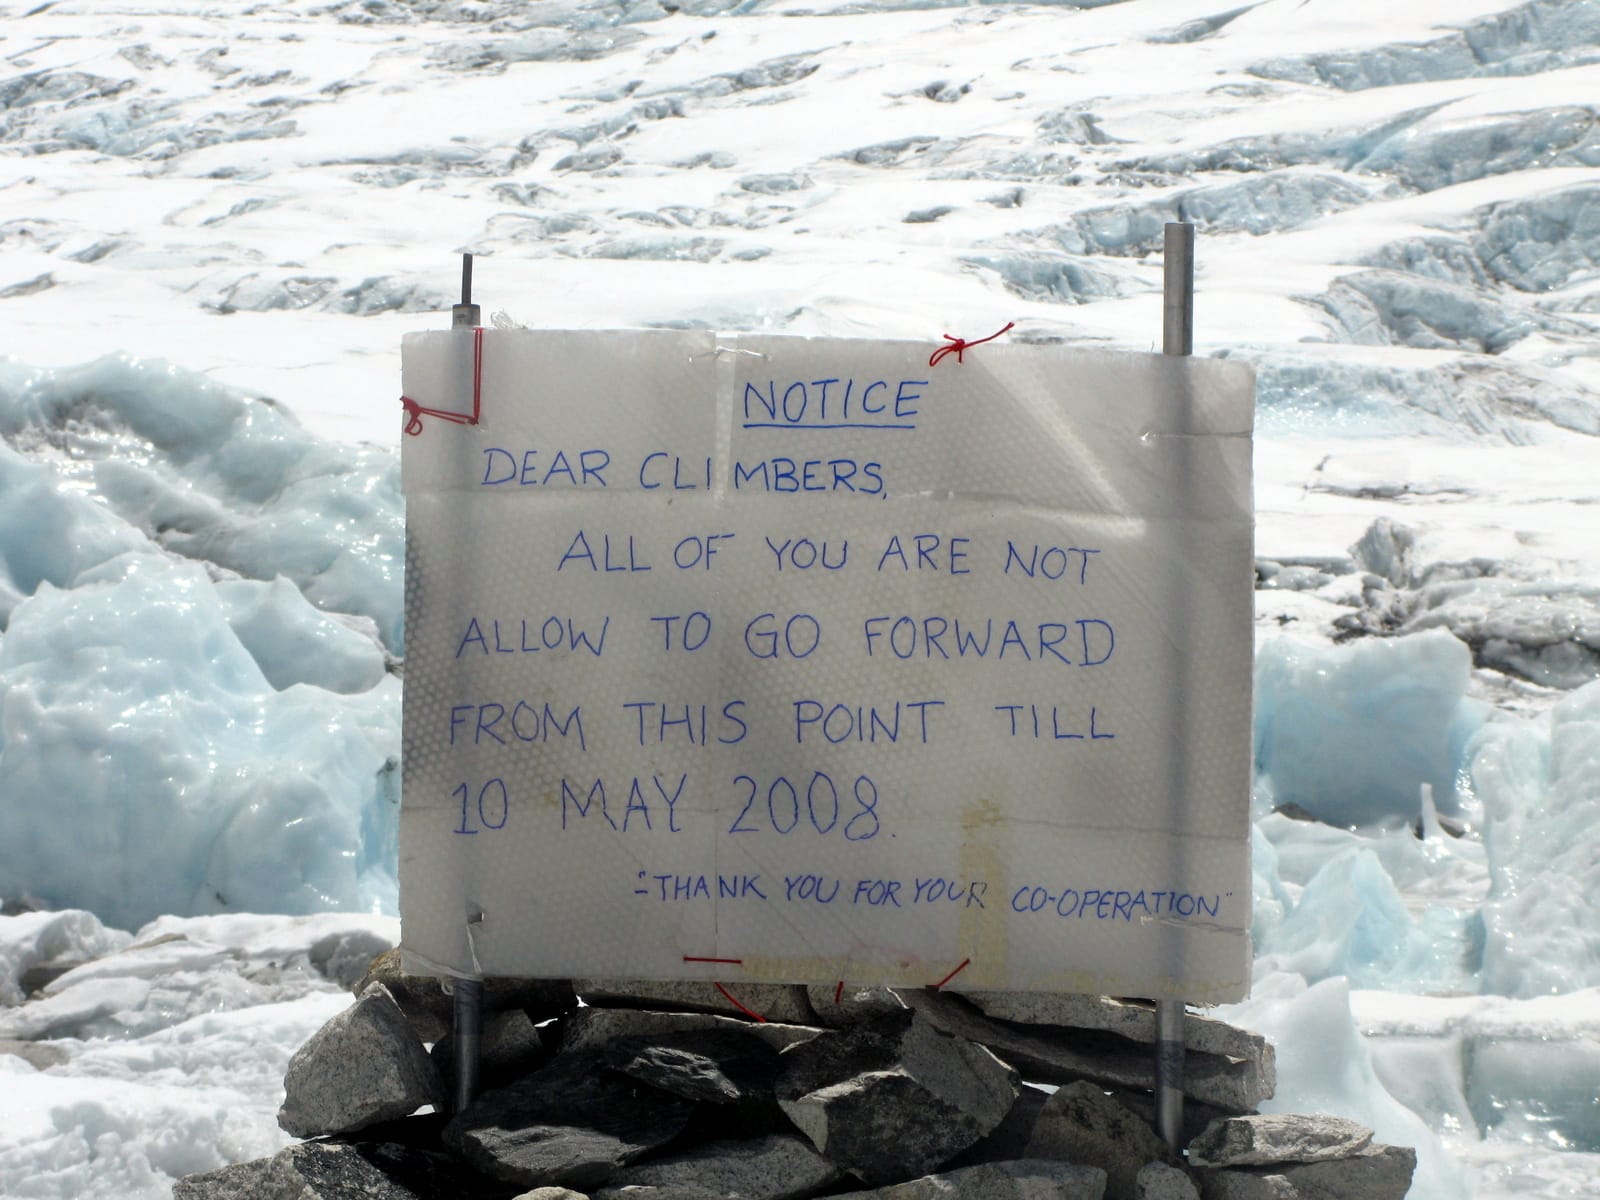 NOTICE
DEAR CLIMBERS,
ALL OF YOU ARE NOT
ALLOW TO GO FORWARD
FROM THIS POINT TILL
10 MAY 2008.
"THANK YOU FOR YOUR CO-OPERATION"